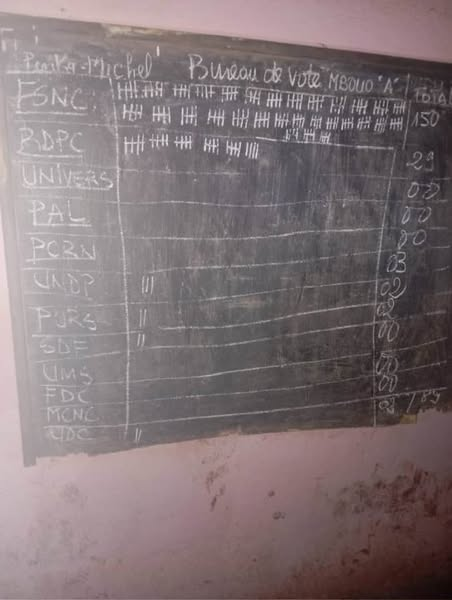 Bureau de vote MBOUO "A"
TOTAL
FSNC 150
RDPC 29
UNIVERS 00
PAL 00
PCRN 00
UNDP 03
PURS 02
SDF 02
UMS 00
FDC 00
MCNC 00
UDC 02 / 189